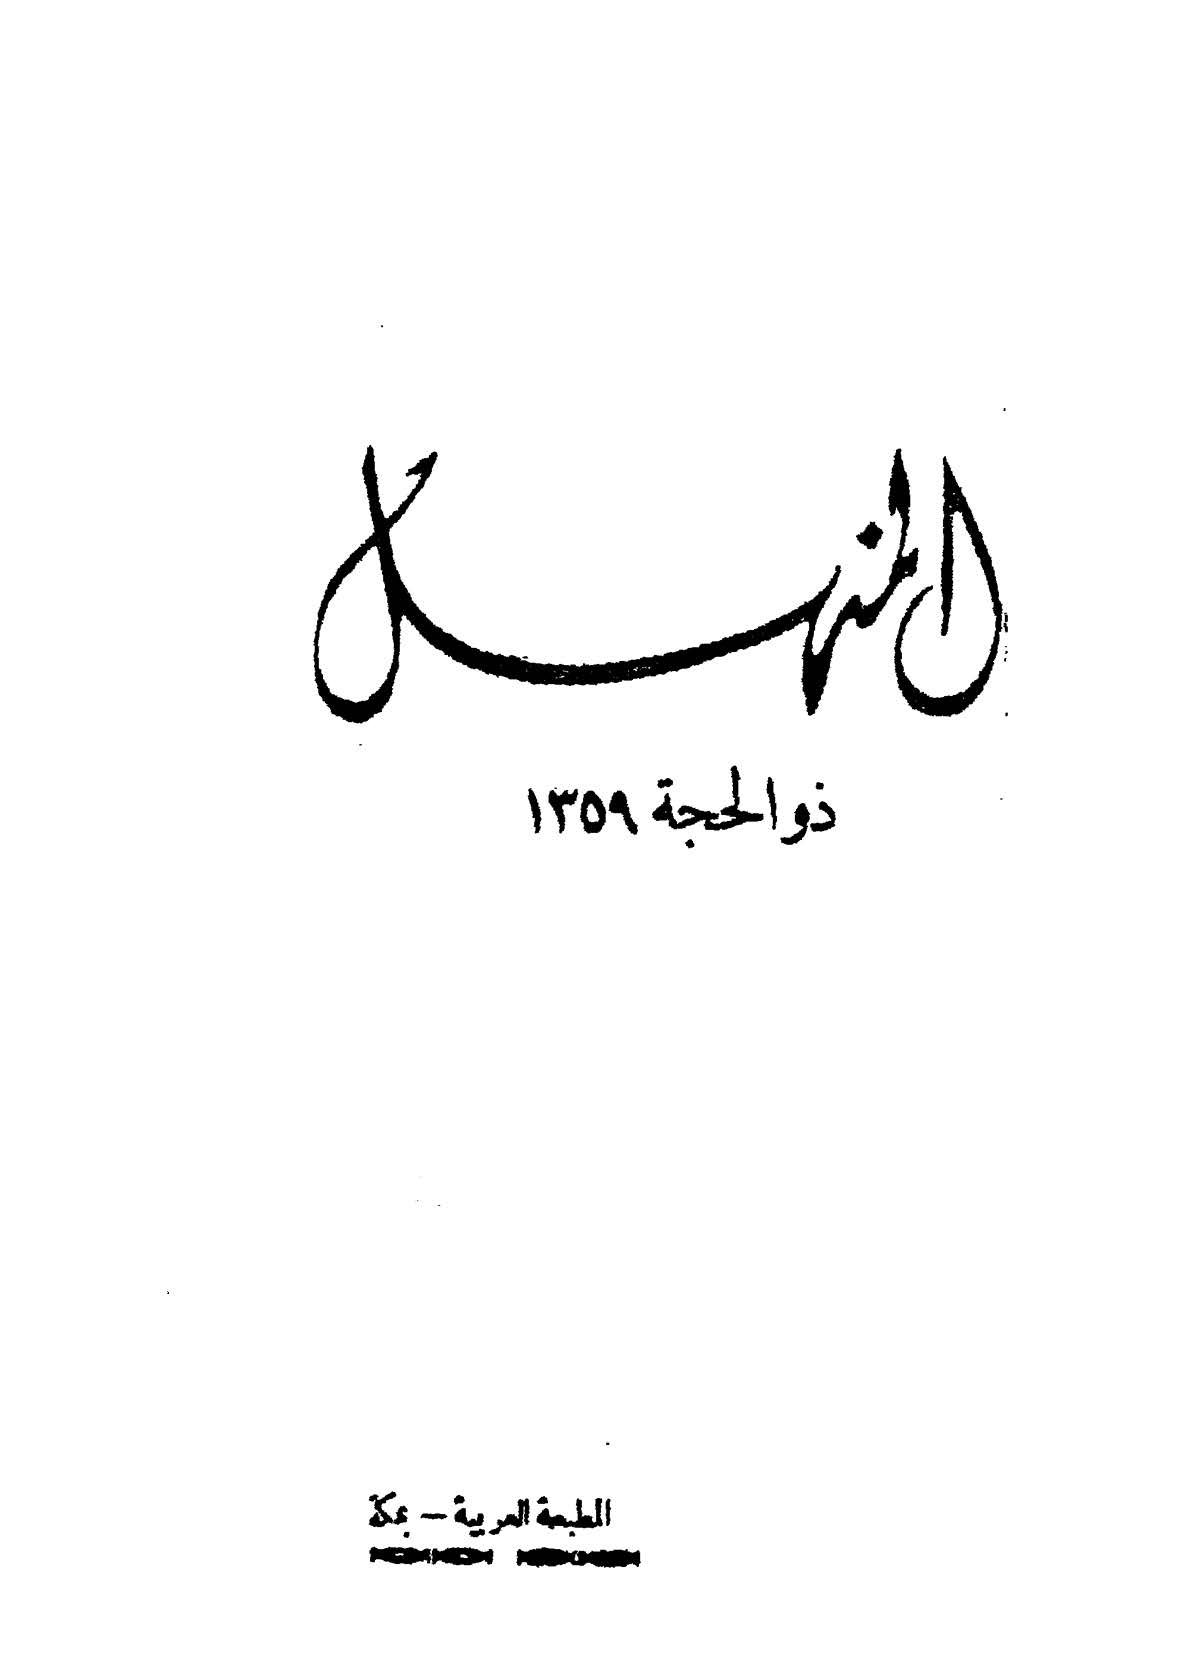 المنهل
ذو الحجة ١٣٥٩
المطبعة العربية – بمكة